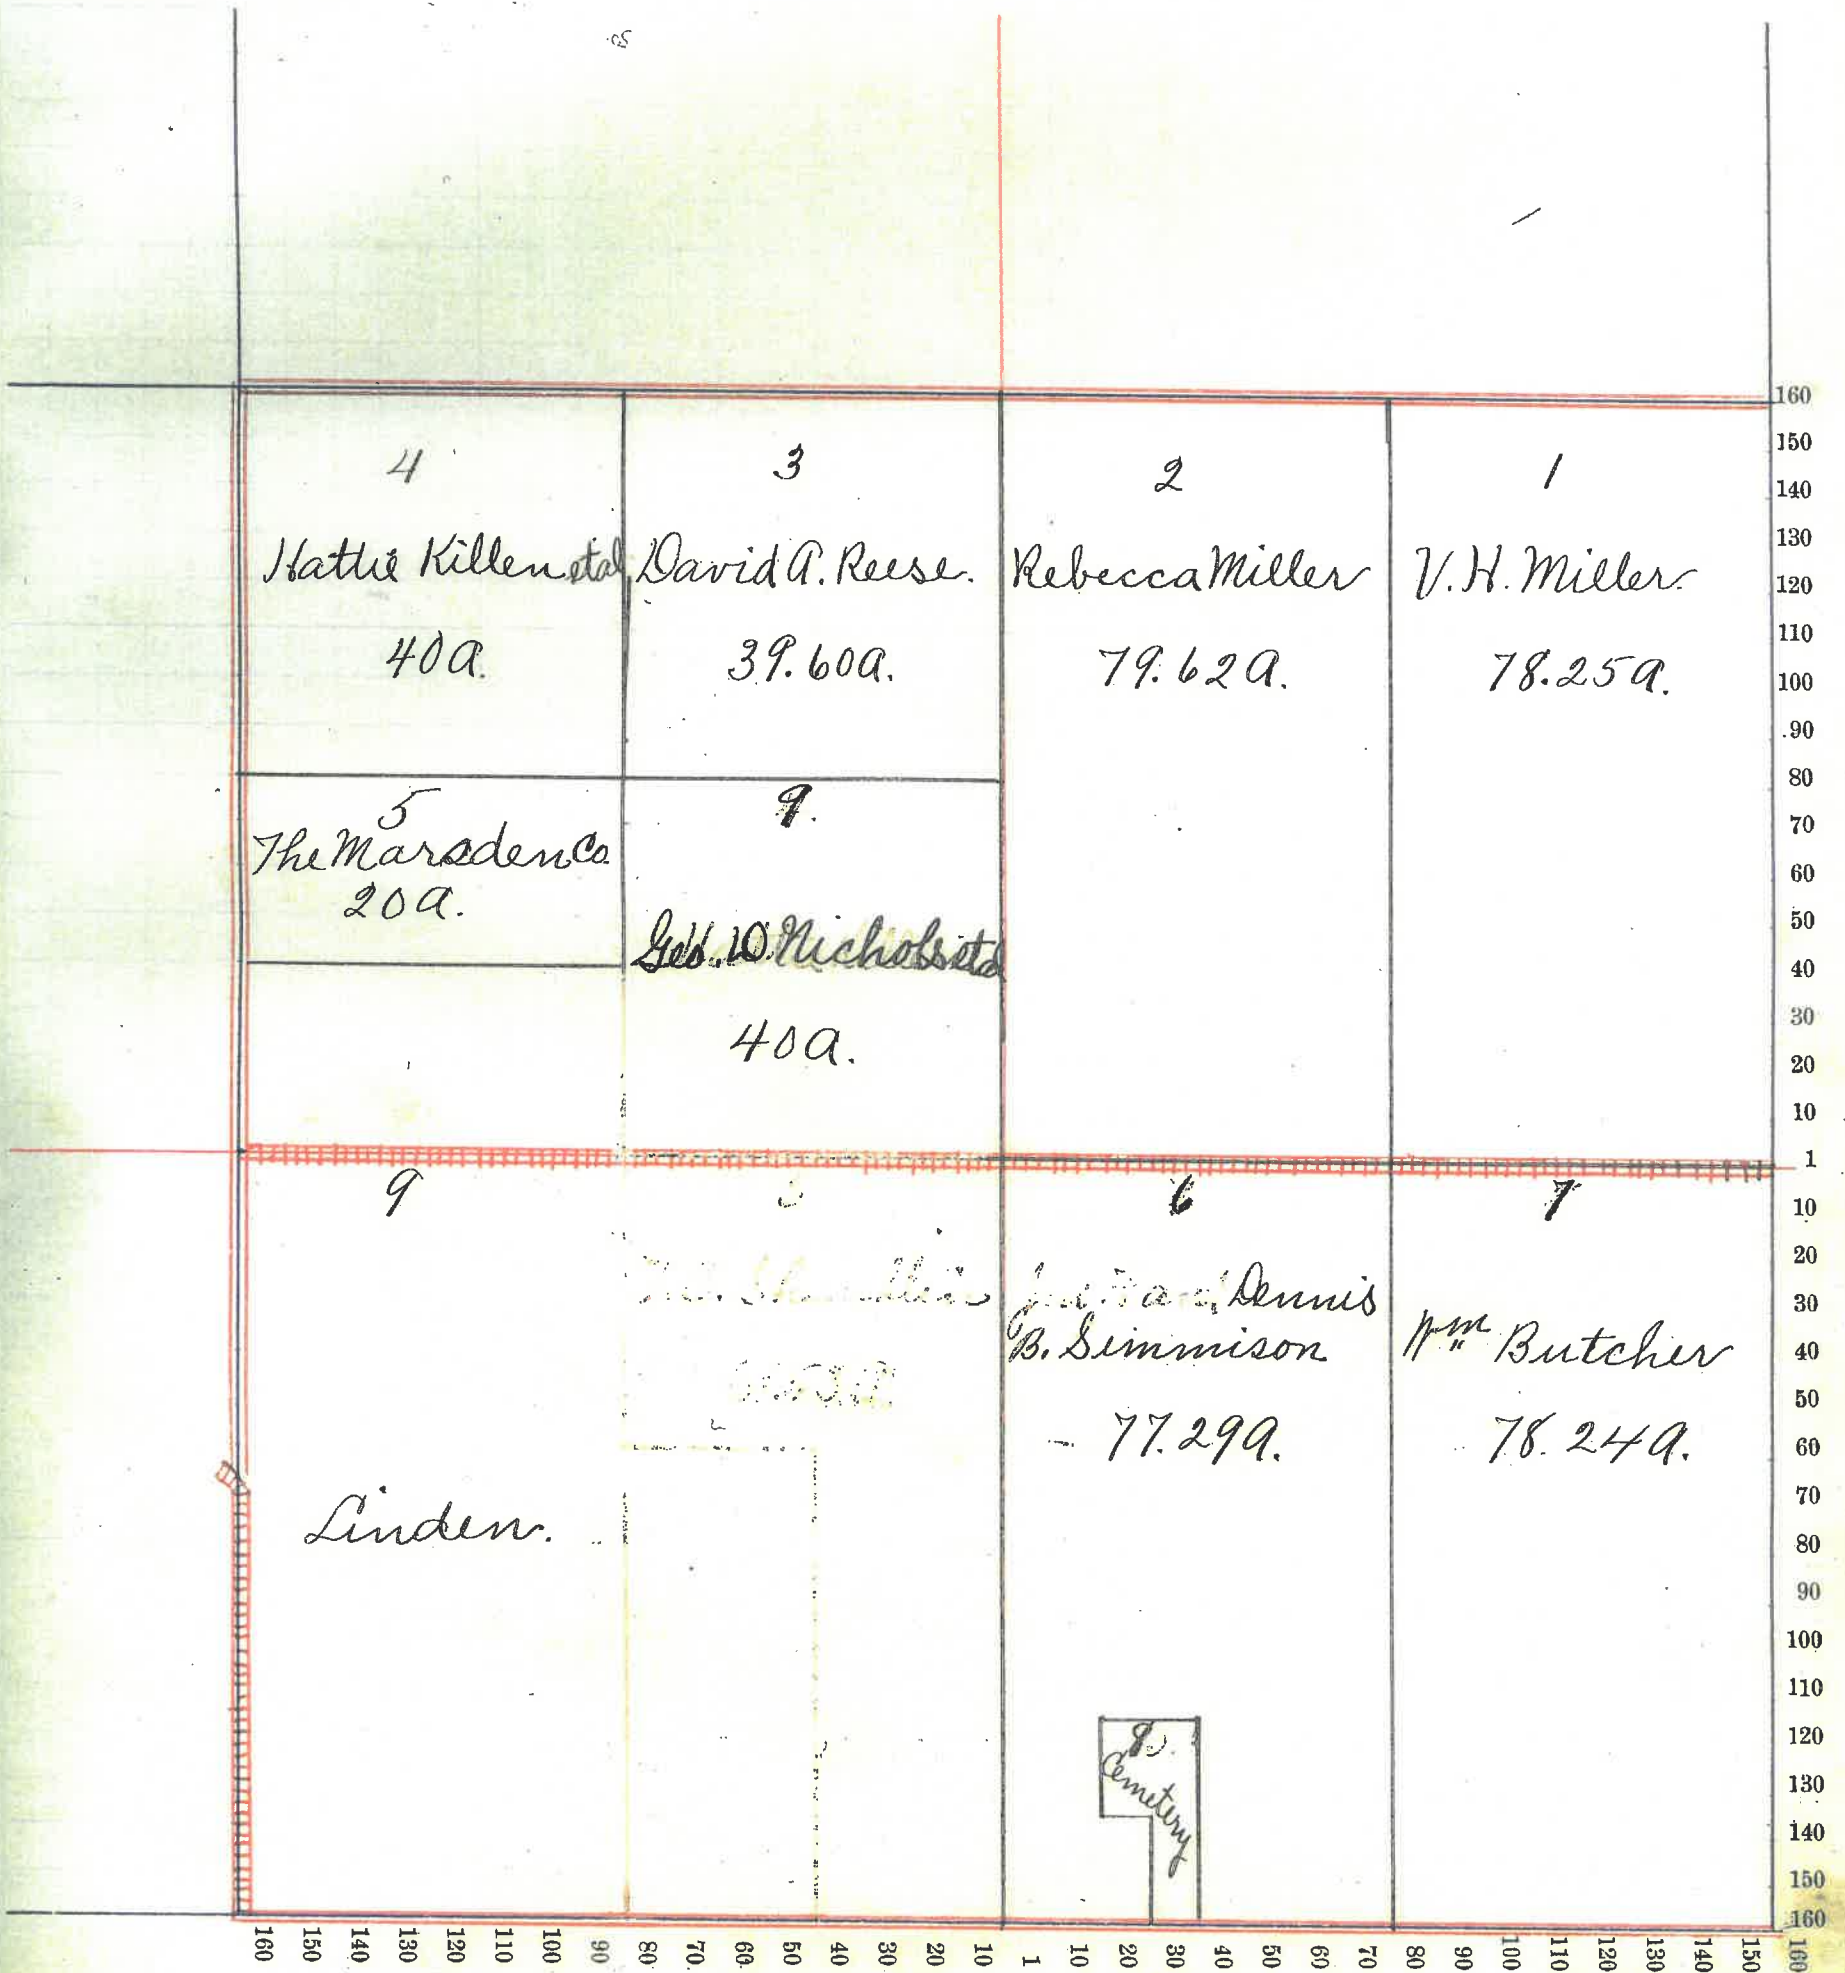 4
Hattie Killen etal
40a.
3
David A. Reese.
39.60a.
2
Rebecca Miller
79.62a.
1
V. H. Miller.
78.25a.
5
The Marsden Co.
20a.
9.
Geo. W. Nichols etal
40a.
9
Linden.
6
Dennis
B. Simmison
77.29a.
7
Wm Butcher
78.24a.
8
Cemetery
160
150
140
130
120
110
100
90
80
70
60
50
40
30
20
10
1
10
20
30
40
50
60
70
80
90
100
110
120
130
140
150
160
160 150 140 130 120 110 100 90 80 70 60 50 40 30 20 10 1 10 20 30 40 50 60 70 80 90 100 110 120 130 140 150 160